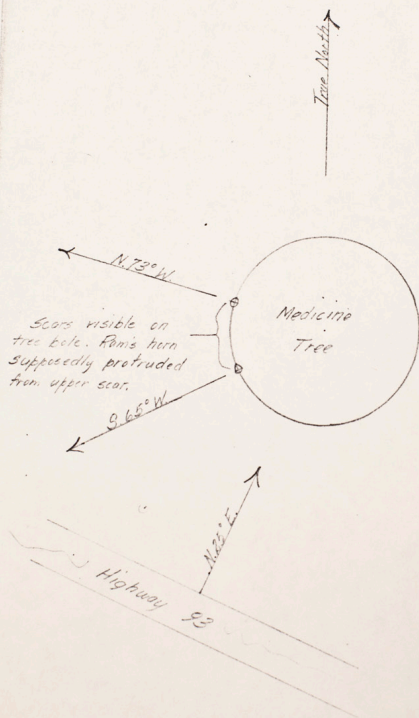 True North
N.73°W.
Medicine
Tree
Scars visible on
tree bole. Ram's horn
supposedly protruded
from upper scar.
S.65°W.
N.25°E.
Highway 93